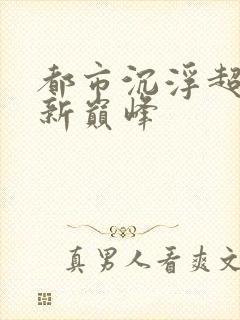 都市沉浮超
新巅峰
真男人看爽文